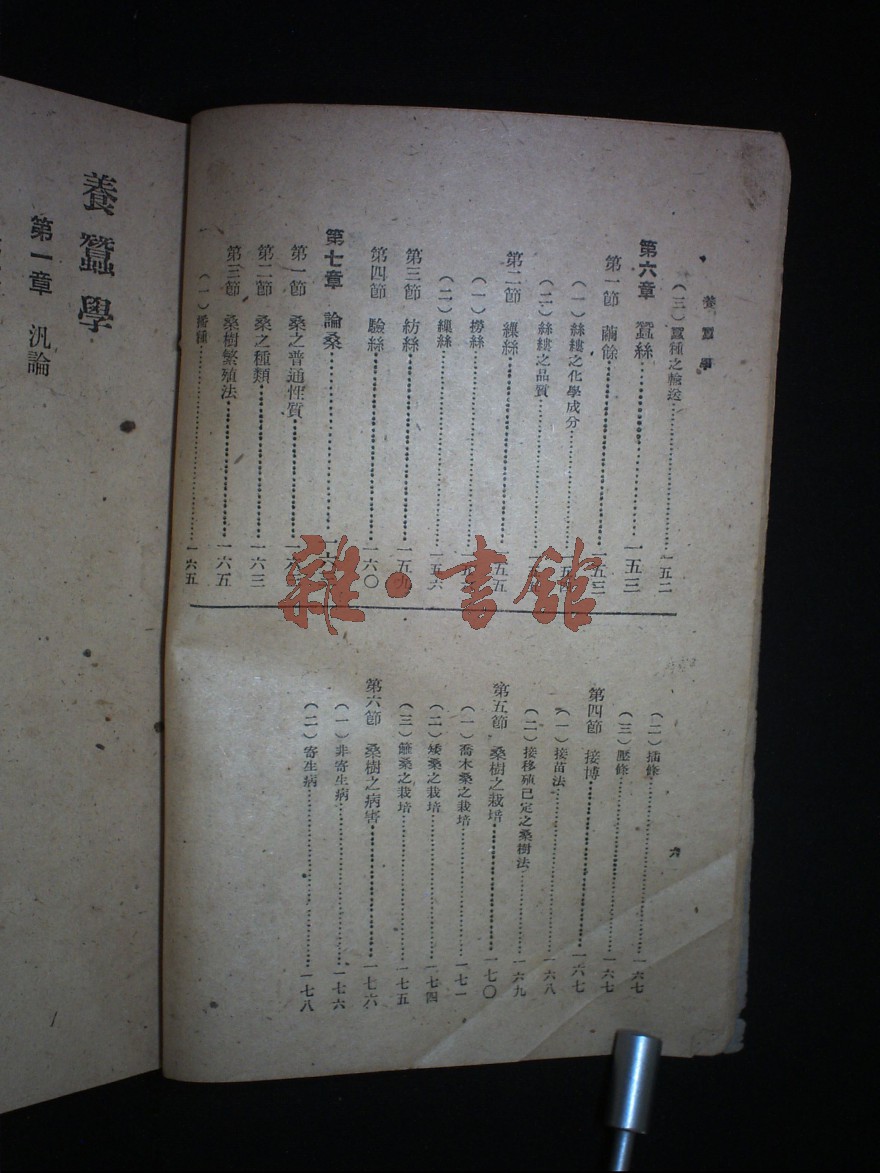 養蠶學
六
(三)蠶種之輸送………一五二
第六章 蠶絲………一五三
第一節 繭餘………一五三
(一)絲縷之化學成分………
(二)絲縷之品質………
第二節 繅絲………一五五
(一)撈絲………
(二)繅絲………一五六
第三節 紡絲………一五九
第四節 驗絲………一六〇
第七章 論桑………
第一節 桑之普通性質………
第二節 桑之種類………一六三
第三節 桑樹繁殖法………一六五
(一)播種………一六五
(二)插條………一六七
(三)壓條………一六七
第四節 接博………一六七
(一)接苗法………一六八
(二)接移殖已定之桑樹法………一六九
第五節 桑樹之栽培………一七〇
(一)喬木桑之栽培………一七一
(二)矮桑之栽培………一七四
(三)籬桑之栽培………一七五
第六節 桑樹之病害………一七六
(一)非寄生病………一七六
(二)寄生病………一七八
養蠶學
第一章 汎論
雜·書館